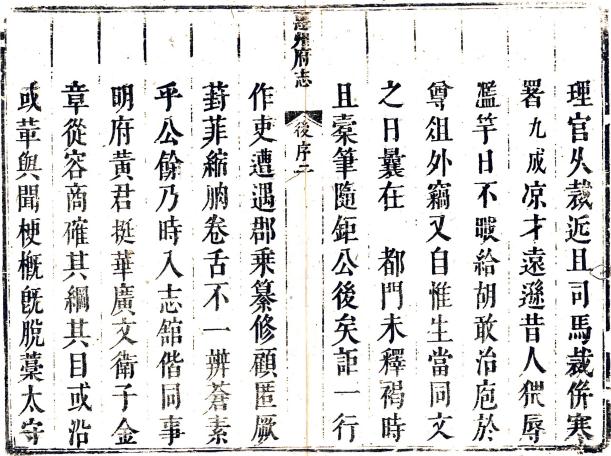 理官久裁近且司馬裁併寒
署九成凉才遠遜昔人猥辱
濫竽日不暇給胡敢治庖於
尊俎外竊又自惟生當同文
之日曩在　都門未釋褐時
且橐筆隨鉅公後矣詎一行
州府志
後序二
作吏遭遇郡乘纂修顧匿厥
葑菲縮朒卷舌不一辨蒼素
乎公餘乃時入志舘偕同事
明府黃君挺華廣文衛子金
章從容商確其綱其目或沿
或革與聞梗概旣脫藁太守